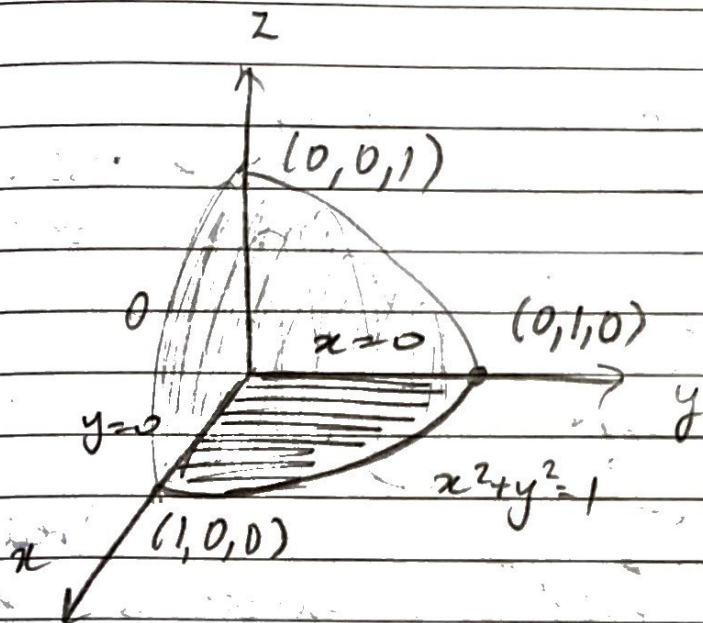 z
(0,0,1)
0
x=0
(0,1,0)
y
y=0
x²+y²=1
(1,0,0)
x